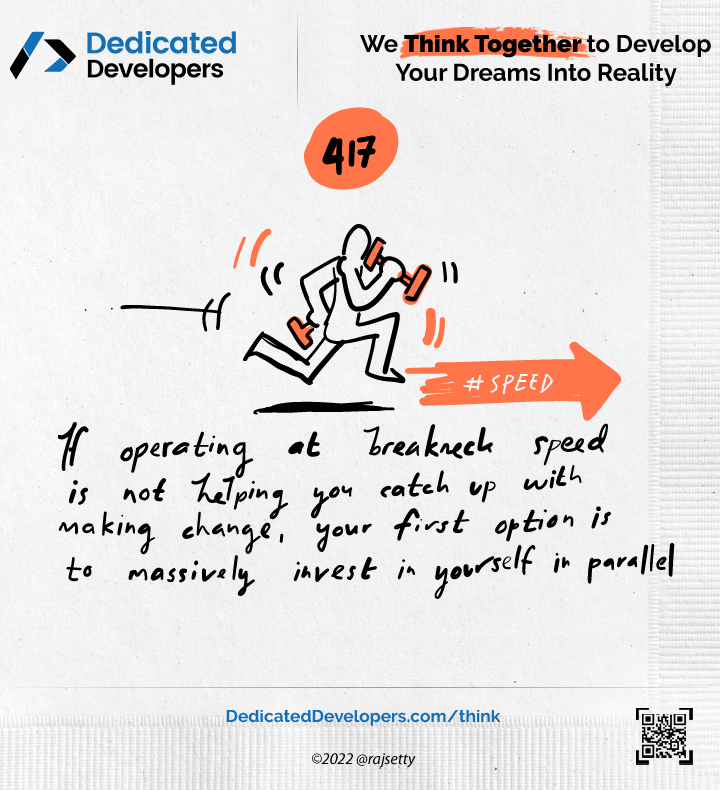 Dedicated
Developers
We Think Together to Develop
Your Dreams Into Reality
417
#SPEED
If operating at breakneck speed
is not helping you catch up with
making change, your first option is
to massively invest in yourself in parallel
DedicatedDevelopers.com/think
©2022 @rajsetty